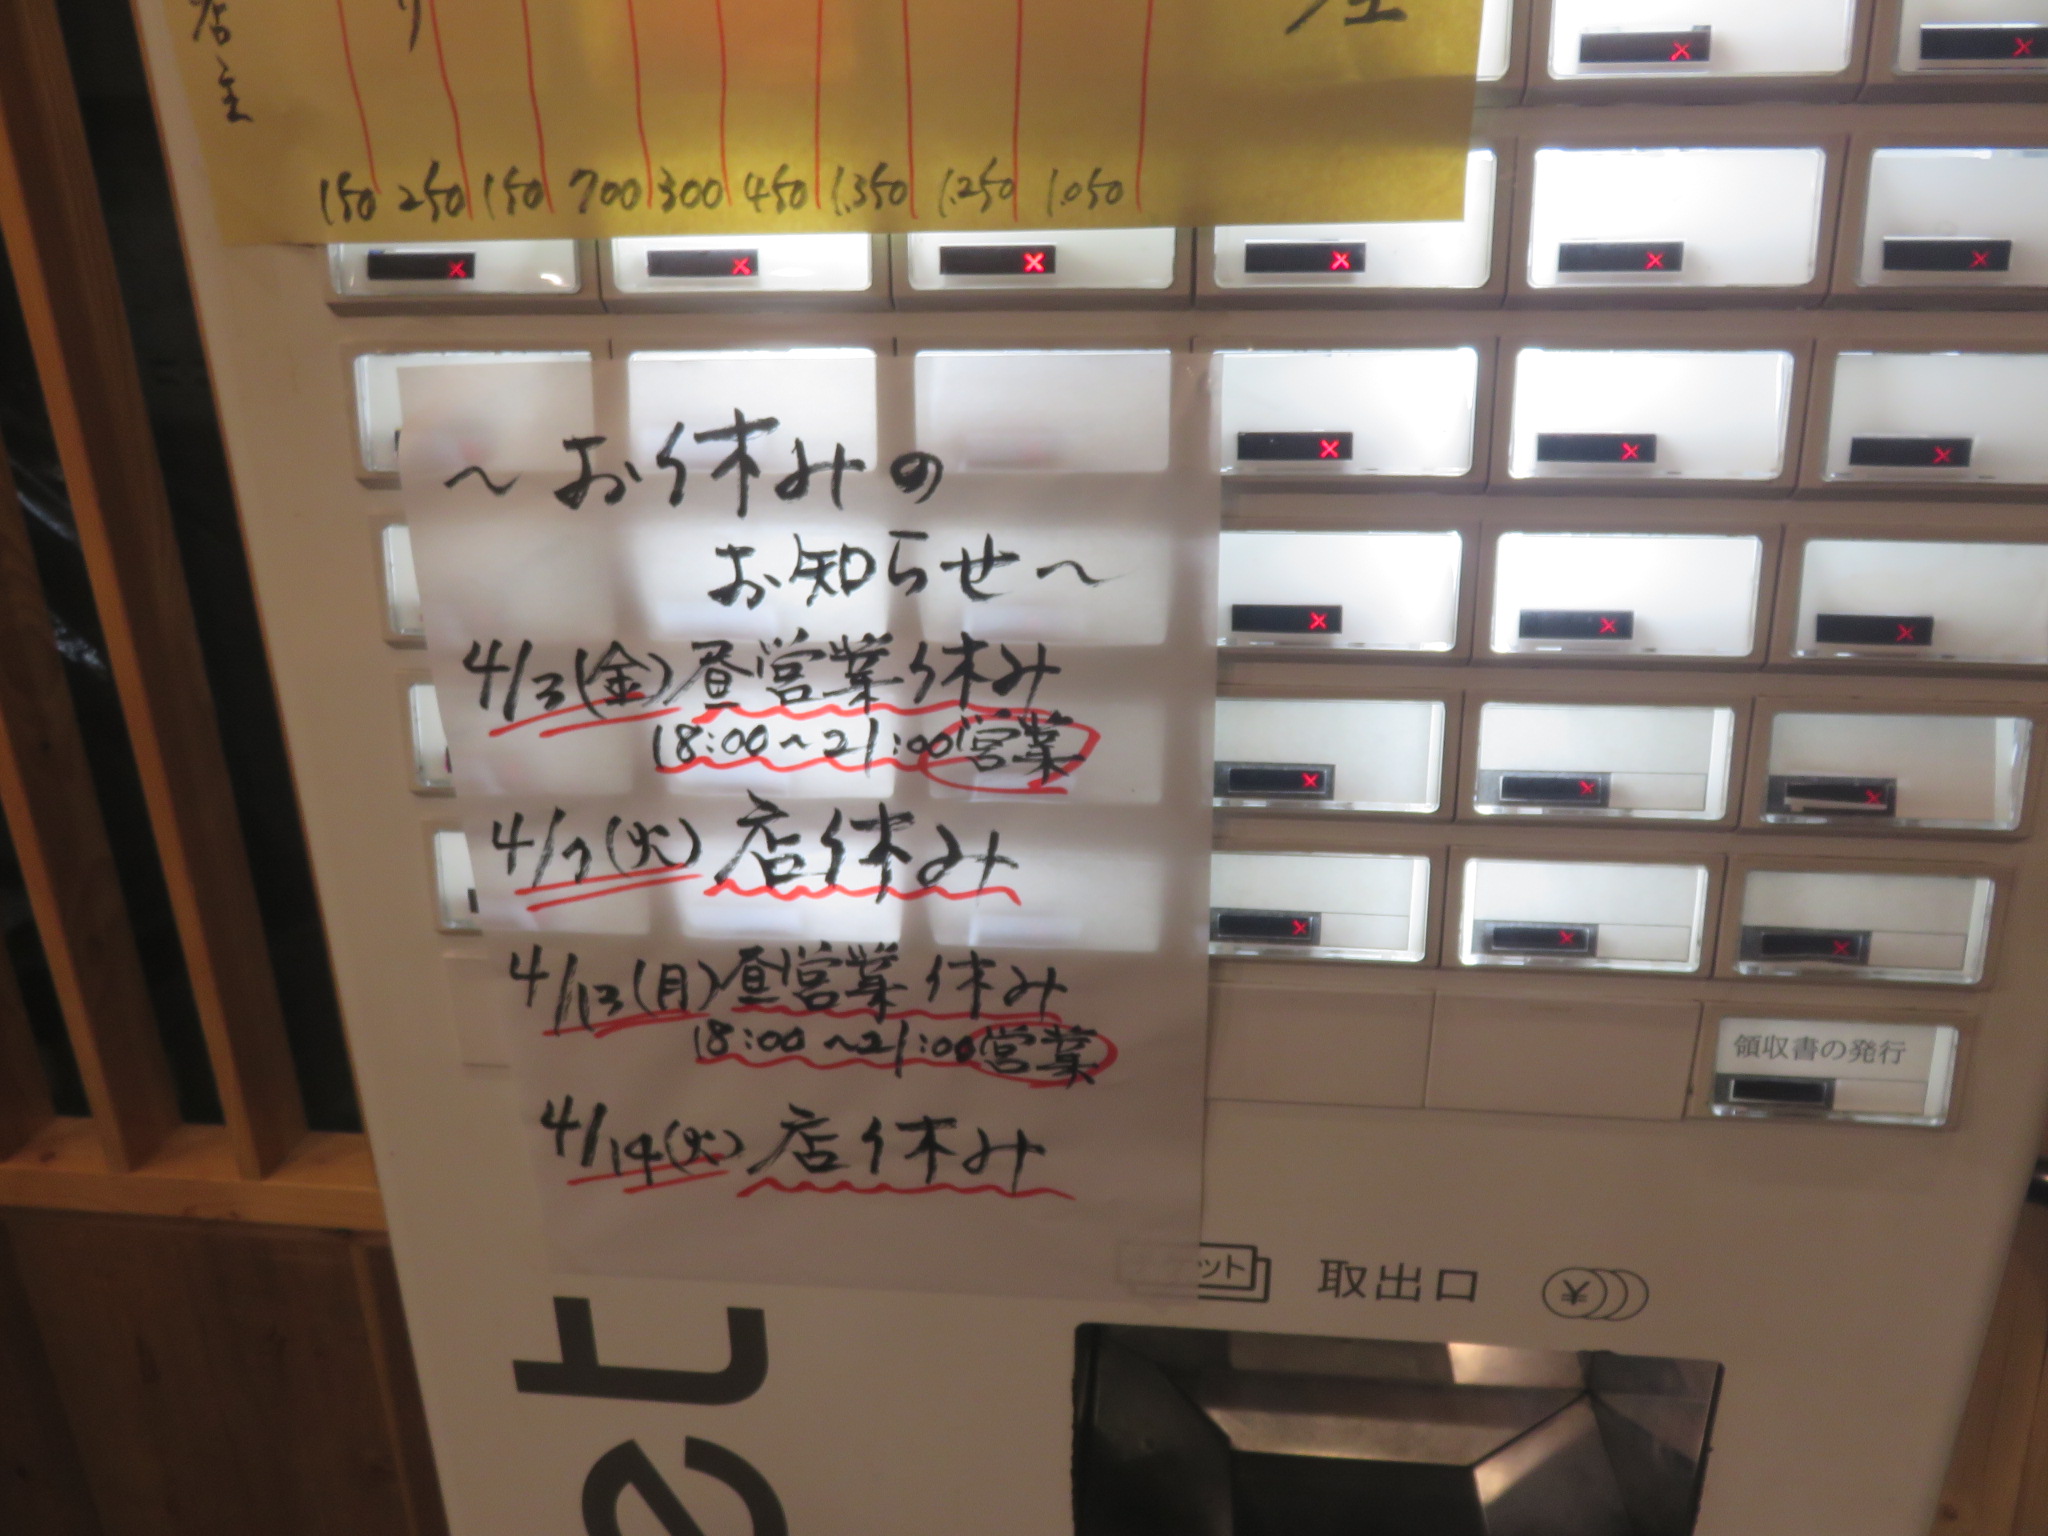 店主
150 250 150 700 300 450 1,350 1,250 1,050
～お休みの
お知らせ～
4/3(金)昼営業休み
18:00～21:00営業
4/7(火)店休み
4/13(月)昼営業休み
18:00～21:00営業
4/14(火)店休み
領収書の発行
取出口
et